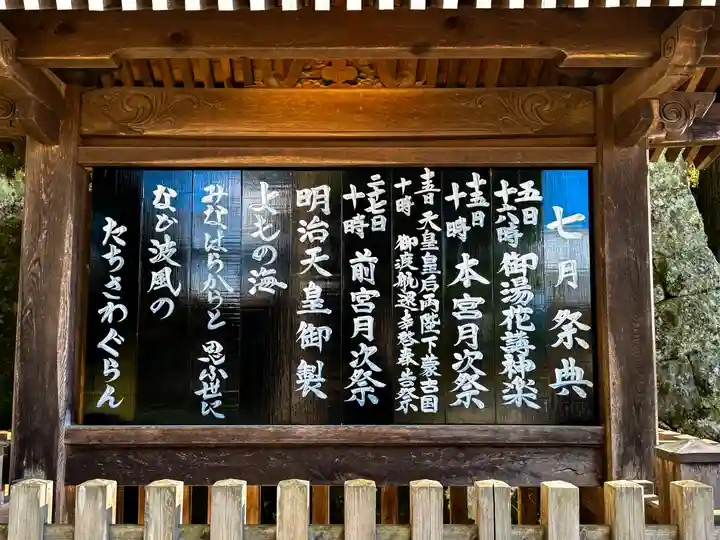 七月祭典
五日
十六時
御湯花講神楽
十五日
十時
本宮月次祭
十五日 天皇皇后両陛下蒙古国
十時 御渡航還幸啓奉告祭
二十七日
十時
前宮月次祭
明治天皇御製
よもの海
みなはらからと 思ふ世に
など波風の
たちさわぐらん